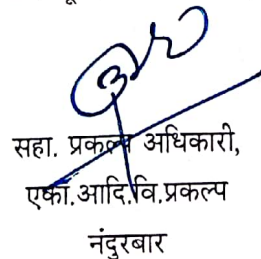 सहा. प्रकल्प अधिकारी,
एका.आदि.वि.प्रकल्प
नंदुरबार